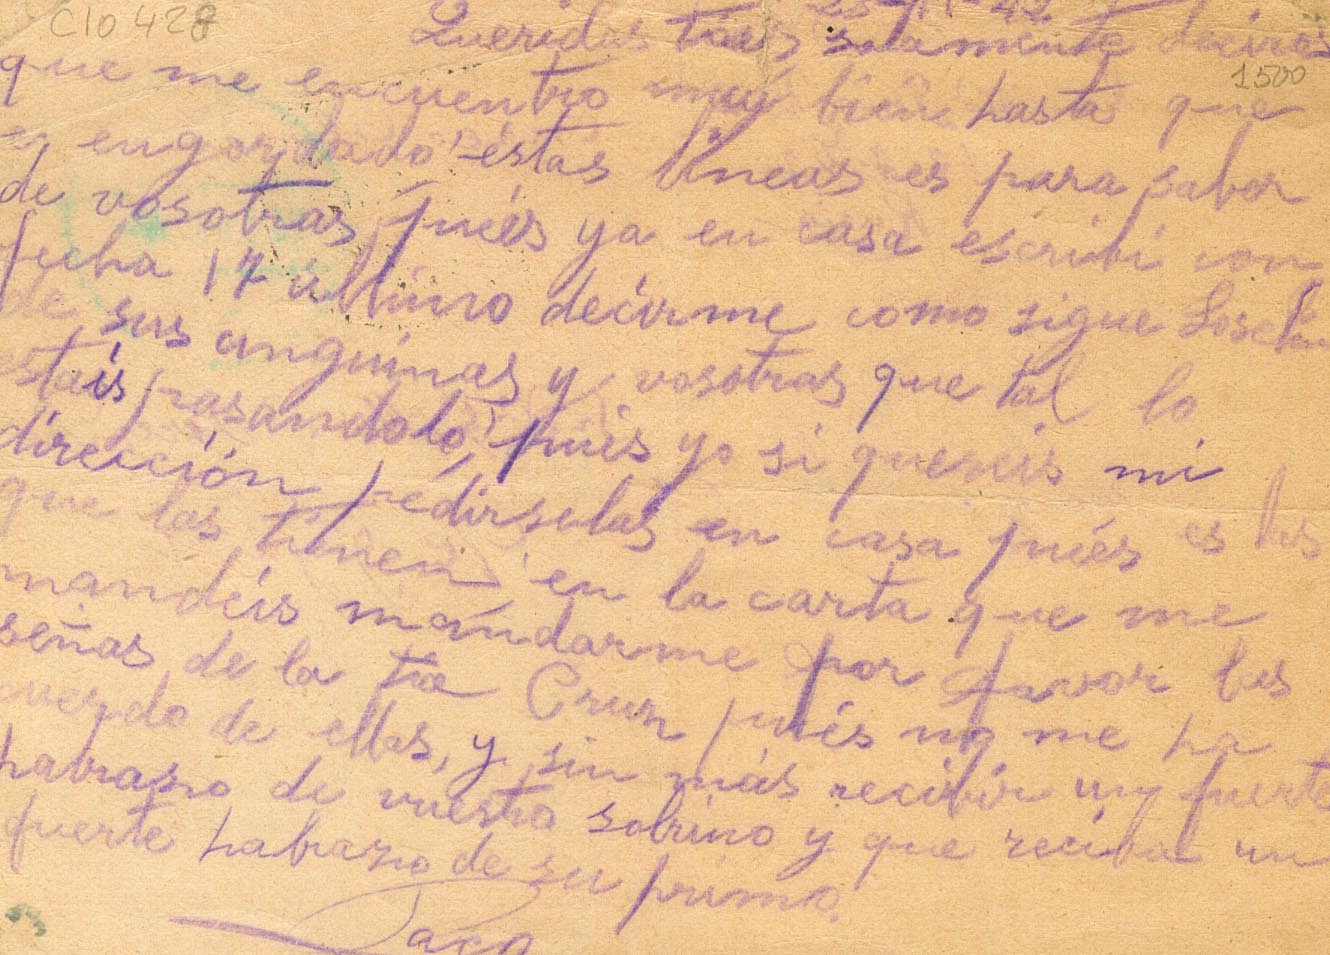 C10 428
25-11-42
Queridas tias solamente deciros
1500
que me encuentro muy bien hasta que
e engordado éstas líneas es para saber
de vosotras pués ya en casa escribí con
fecha 17 último decirme como sigue
de sus anguinas y vosotras que tal lo
estáis pasandolo, pués yo si quereis mi
dirección pédirselas en casa pués es las
que las tienen en la carta que me
mandéis mándarme por favor las
señas de la tia Cruz pués no me ha
cuerdo de ellas, y sin más recibir un fuerte
habrazo de vuestro sobrino y que reciba un
fuerte habrazo de su primo.
Paco